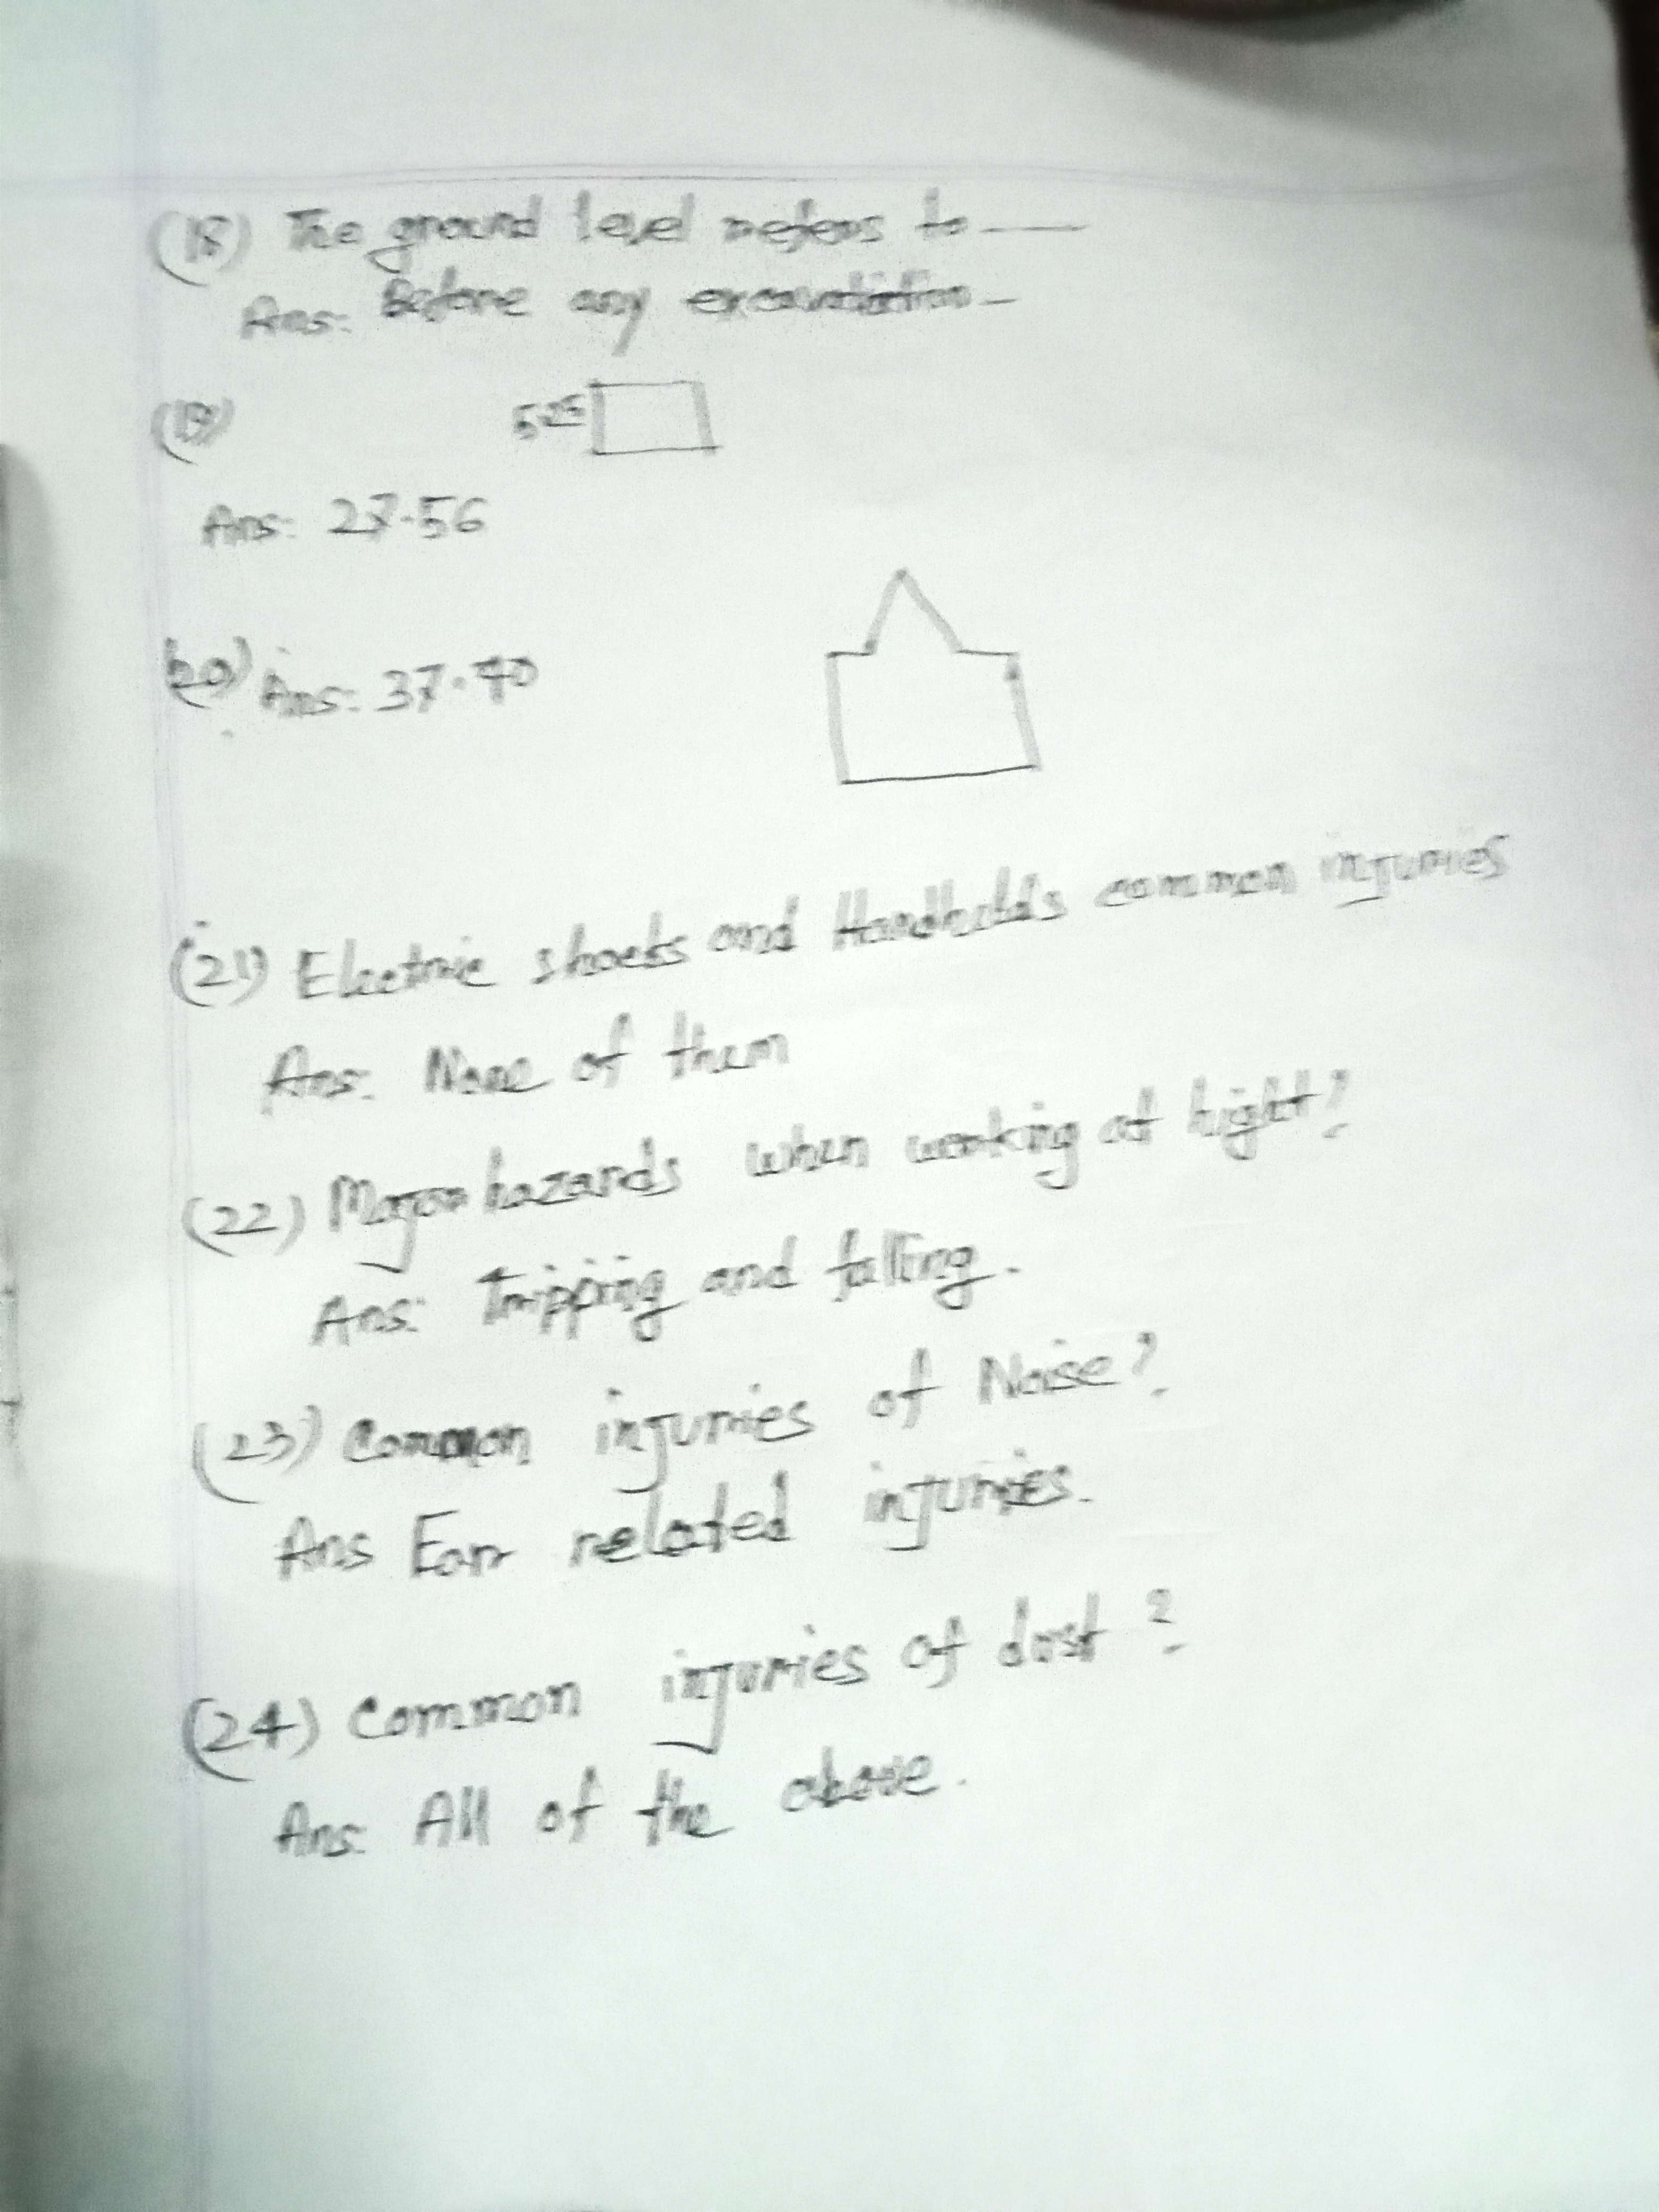 (18) The ground level refers to —
Ans: Before any excavation -
(19) 5.25
Ans: 27.56
(20) Ans: 37.70
(21) Electric shocks and common injuries
Ans: None of them
(22) Major hazards when working at hight?
Ans: Tripping and falling.
(23) Common injuries of Noise?
Ans Ear related injuries.
(24) Common injuries of dust?
Ans: All of the above.